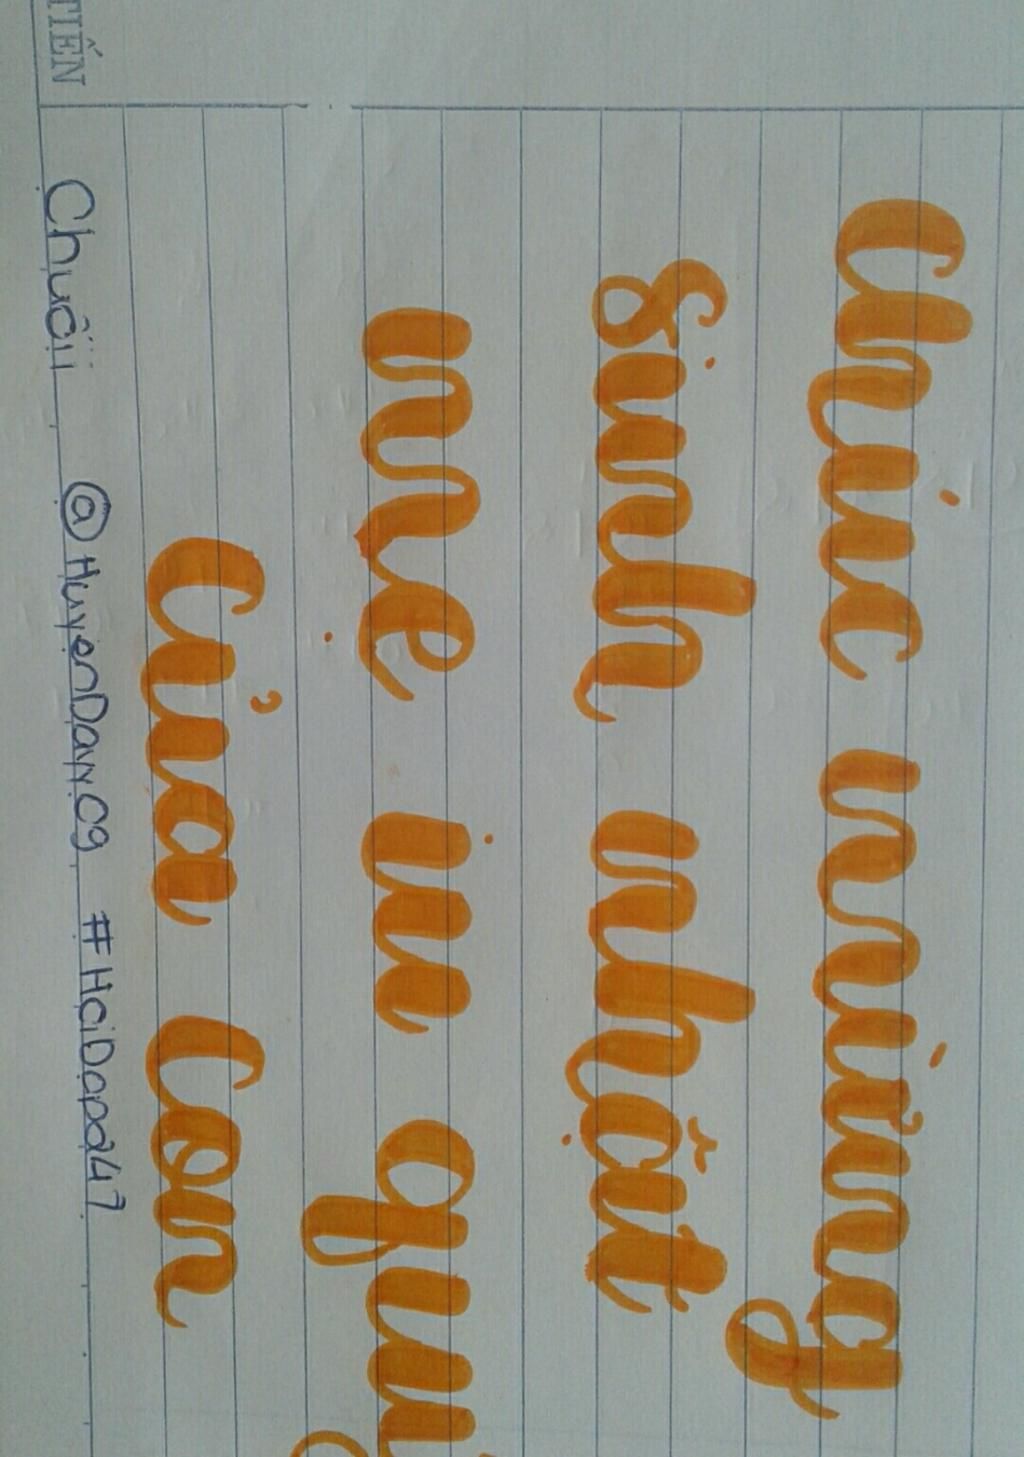 Chúc mừng
Sinh nhật
mẹ iu quý
Của Con
Chuốii @HuyenDayy09 #HoiDap247
TIẾN